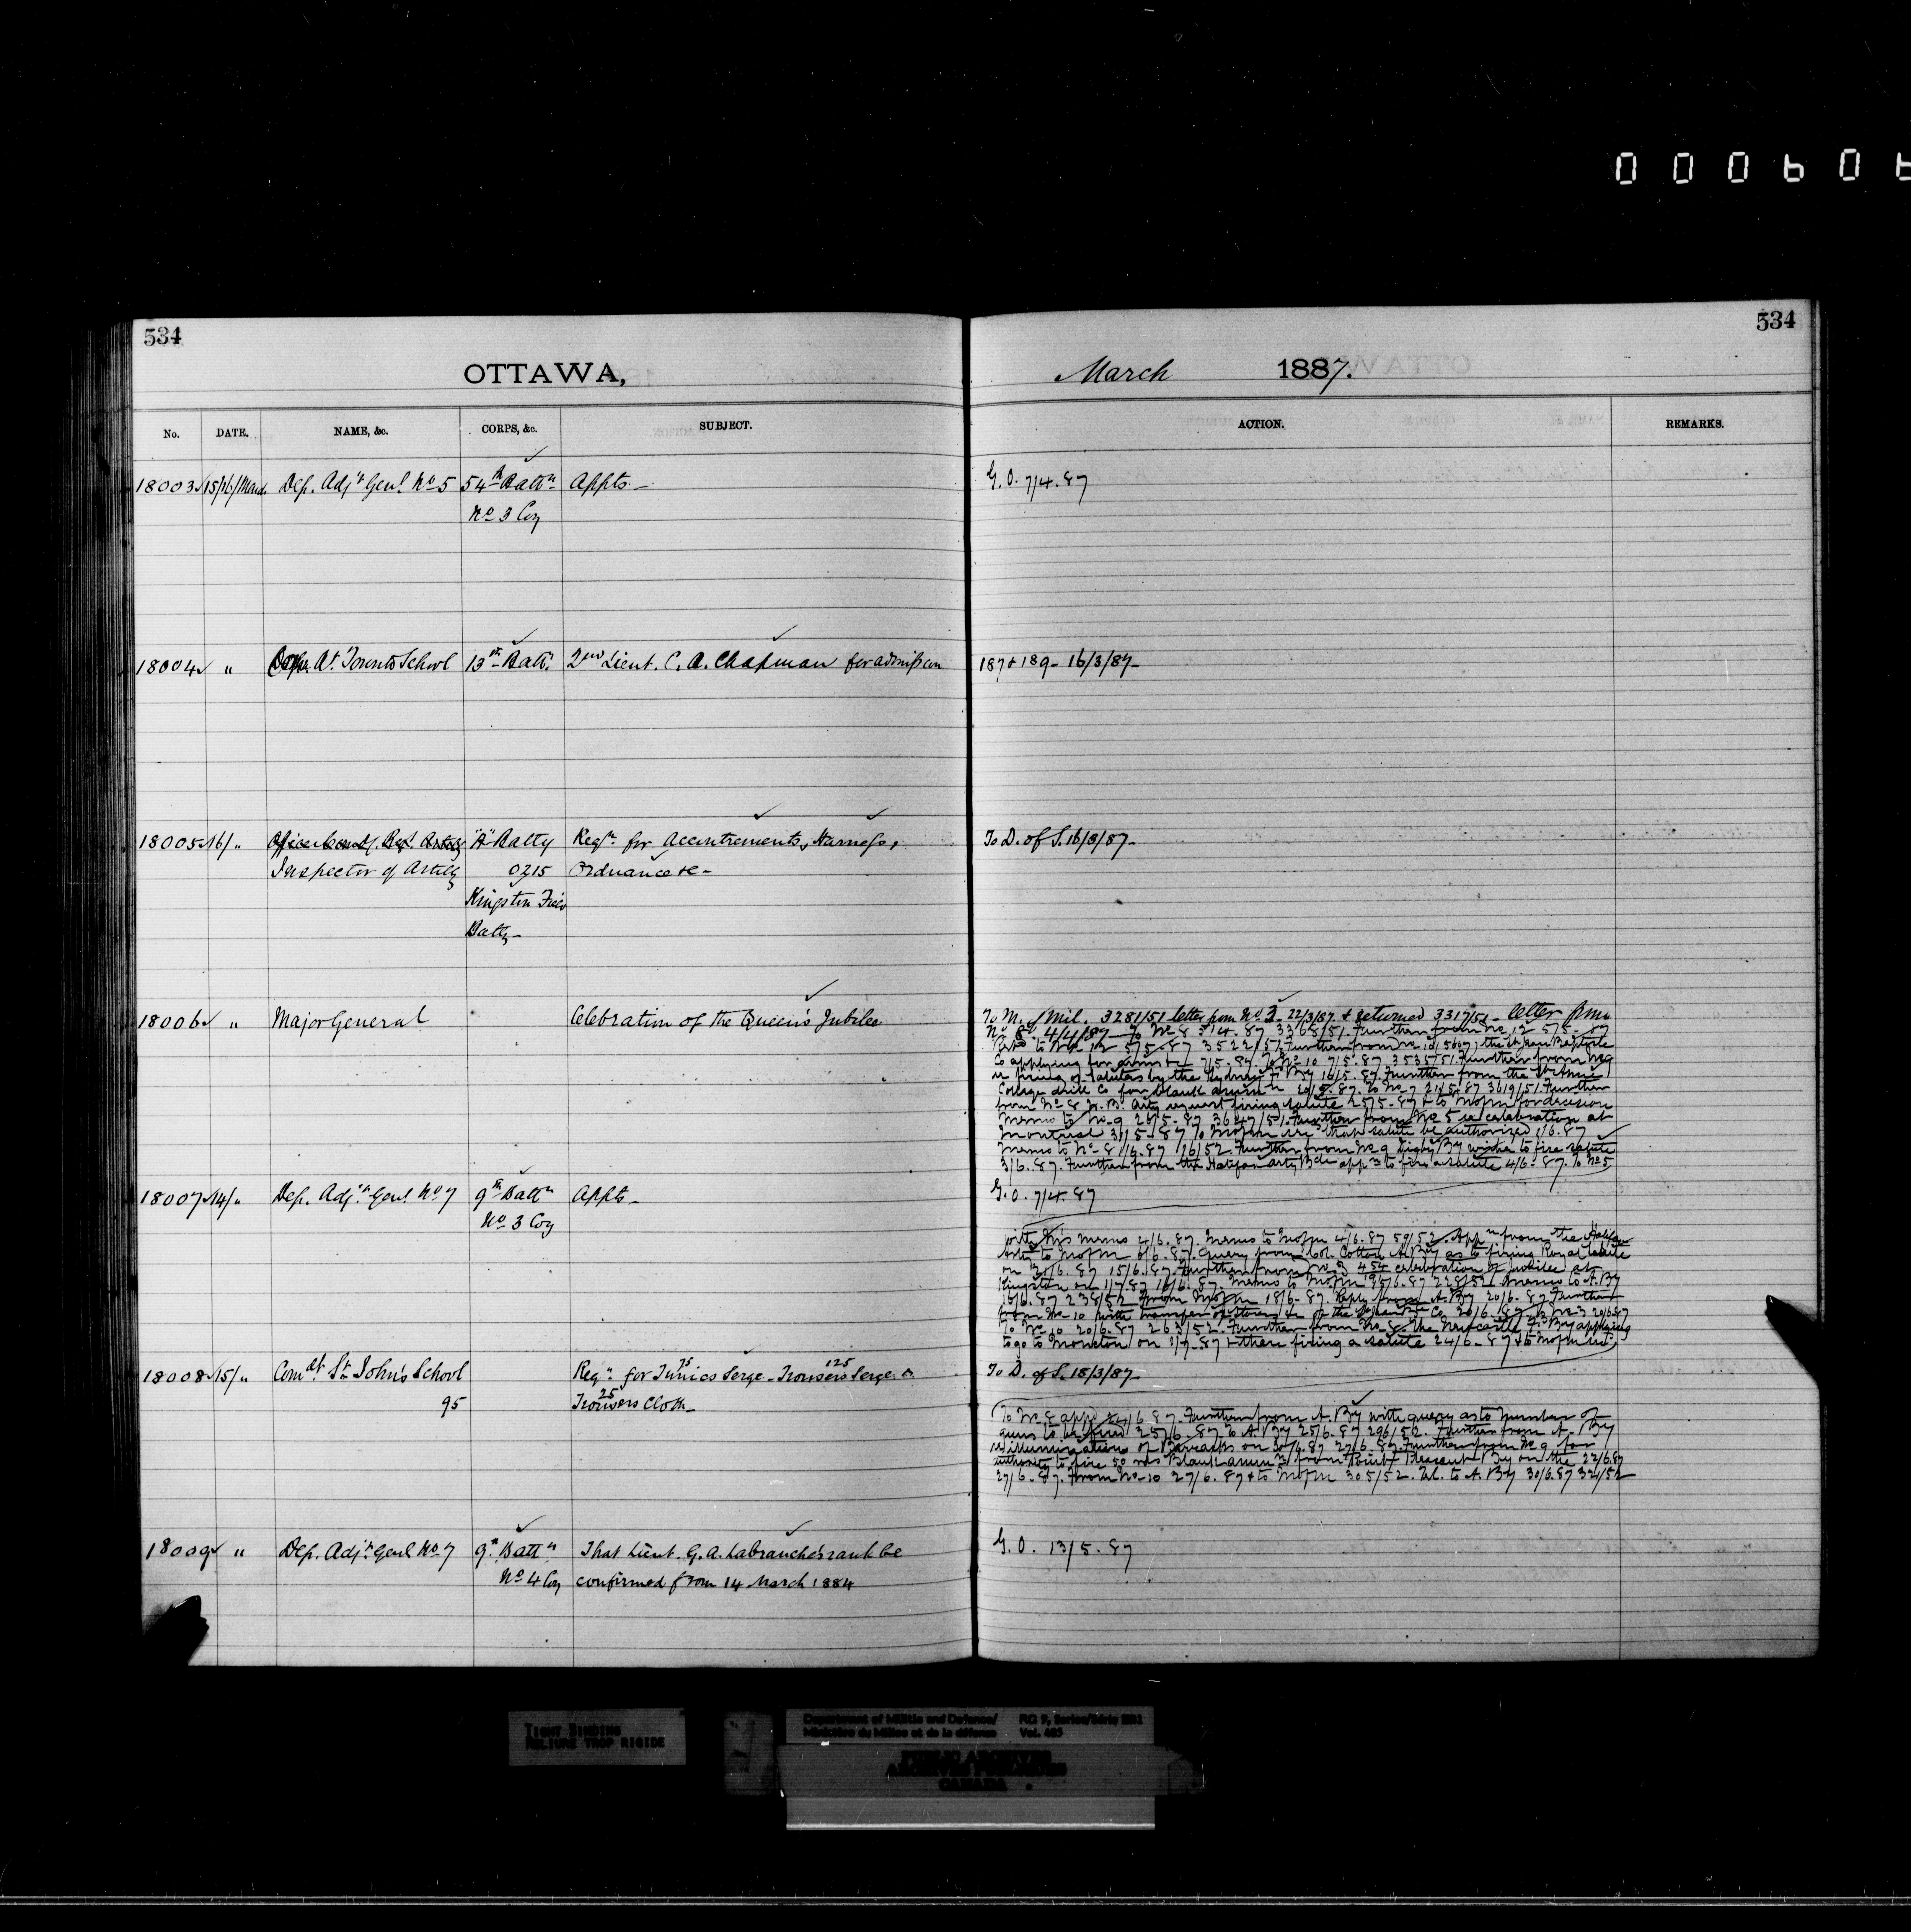 000606
534
534
OTTAWA,
March 1887.
No. DATE. NAME, &c. CORPS, &c. SUBJECT. ACTION. REMARKS.
18003 15/16/March Dep. Adjt Genl No 5 54th Battn Appts - G.O. 7/4.87
No 3 Coy
18004 " At Toronto School 13th Batt. 2nd Lieut. C. A. Chapman for admission 187 & 189 - 16/3/87 -
18005 16/ " "A" Batty Reqn for Accoutrements, Harness, To D. of S. 16/3/87 -
Inspector of Artily 0215 Ordnance &c -
Kingston Field
Batty -
18006 " Major General Celebration of the Queen's Jubilee To M. of Mil. 3281/51 letter from No 3. 22/3/87 & returned 3317/51 - letter from
No 8 4/4/87 - To No 8 5/4.87 3368/51. Further from No 12 5/5.87
to No 12 5/5.87 3522/51. Further from No 10 the St Jean Baptiste
Co applying for ammtn 7/5.87. To No 10 7/5.87 3535/51. Further from No 9
re firing of Salutes by the Sydney F. By 16/5.87. Further from the St Anne
College drill Co for blank ammn 20/5.87. To No 7 21/5.87 3619/51. Further
from No 8 N.B. Arty request firing salute 25/5.87 & to Mofm for decision
Memo to No 9 26/5.87 3647/51. Further from No 5 re celebration at
Montreal 31/5.87 To Mofm that salute be authorized 1/6.87
Memo to No 8 1/6.87 16/52. Further from No 9 Digby By wishes to fire salute
3/6.87. Further from the Halifax Arty Bde appn to fire a salute 4/6.87. To No 5
18007 14/ " Dep. Adjt Genl No 7 9th Battn Appts - G.O. 7/4.87
No 3 Coy
with his memo 4/6.87. Memo to Mofm 4/6.87 59/52. Appn from the Halifax
Arty to Mofm 6/6.87. Query from Col. Cotton A By as to firing Royal salute
on 21/6.87 15/6.87. Further from No 3 & 4 celebration of Jubilee at
Kingston on 1/7/87 16/6.87. Memo to Mofm 228/52. Memo to A. By
18/6.87 238/52. From Mofm 18/6.87. Reply from A. By 20/6.87. Further
from No 10 with transfer of stores of the Co 20/6.87 To No 3 20/6.87
To No 10 20/6.87 263/52. Further from No 8 the Newcastle F. By applying
to go to Moncton on 1/7.87 & there firing a salute 24/6.87 & to Mofm
18008 15/ " Comdt St John's School Reqn for 75 Tunics Serge - 125 Trousers Serge & To D. of S. 18/3/87 -
95 25 Trousers Cloth -
To No 8 appd 24/6.87. Further from A. By with query as to number of
guns to be fired 25/6.87. To A. By 25/6.87 296/52. Further from A. By
re illumination of Barracks on 27/6.87. Further from No 9 for
authority to fire 50 rds Blank ammn from Point Pleasant By on the 22/6.87
27/6.87. From No 10 27/6.87 & to Mofm 305/52. Tel. to A. By 30/6.87 324/52
18009 " Dep. Adjt Genl No 7 9th Battn That Lieut. G. A. Labranche's rank be G.O. 13/5.87
No 4 Coy confirmed from 14 March 1884
TIGHT BINDING
RELIURE TROP RIGIDE
Department of Militia and Defence/ RG 9, Series/Série IIB1
Ministère du Milice et de la défense Vol. 463
PUBLIC ARCHIVES
ARCHIVES PUBLIQUES
CANADA